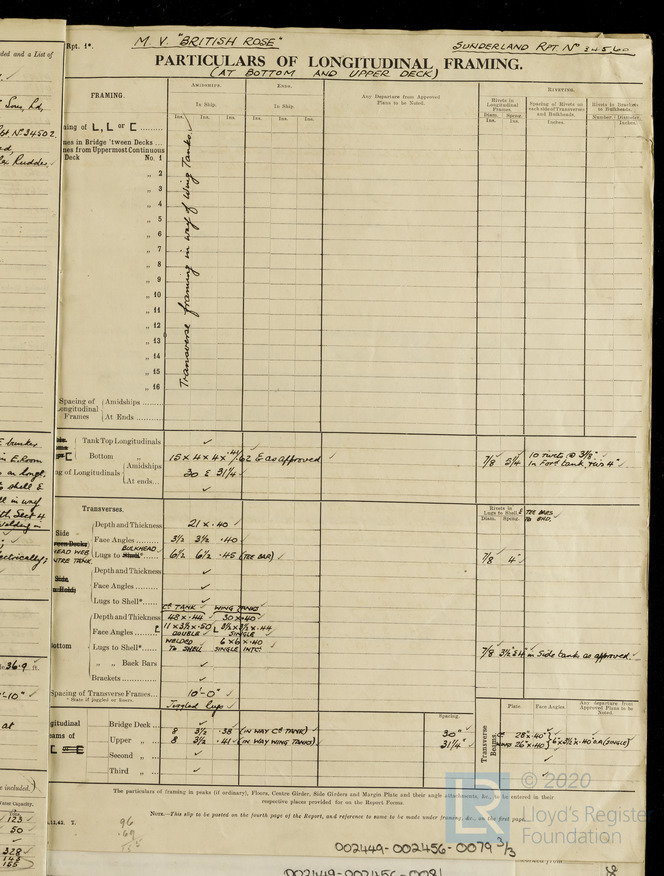 Rpt. 1*.
M. V. "BRITISH ROSE"
SUNDERLAND RPT. Nº 34560
PARTICULARS OF LONGITUDINAL FRAMING.
(AT BOTTOM AND UPPER DECK)
FRAMING.
AMIDSHIPS.
In Ship.
ENDS.
In Ship.
Any Departure from Approved
Plans to be Noted.
RIVETING.
Rivets in
Longitudinal
Frames.
Spacing of Rivets on
each side of Transverses
and Bulkheads.
Rivets in Brackets
to Bulkheads.
Diam. Speng.
Ins. Ins.
Inches.
Number. Diameter.
Inches.
Ins. Ins. Ins. Ins. Ins. Ins.
ing of L, L, or [
mes in Bridge 'tween Decks
mes from Uppermost Continuous
Deck No. 1
" 2
" 3
" 4
" 5
" 6
" 7
" 8
" 9
" 10
" 11
" 12
" 13
" 14
" 15
" 16
Transverse framing in way of Wing Tanks.
Spacing of
Longitudinal
Frames
Amidships
At Ends
Tank Top Longitudinals
Bottom " 15 x 4 x 4 x .41/.62 & as approved
7/8 5 1/4
10 rivets @ 3 1/8"
In Fore tank, rws 4"
ng of Longitudinals
Amidships 30 & 31 1/4
At ends
Transverses.
Rivets in
Lugs to Shell & TEE BARS
TO BHD.
Diam. Speng.
Side
Depth and Thickness 21 x .40
Face Angles 3 1/2 3 1/2 .40
BULKHEAD
HEAD WEB
NTRE TANK
Lugs to Shell* 6 1/2 6 1/2 .45 (TEE BAR)
7/8 4"
Depth and Thickness
Face Angles
Lugs to Shell*
Cʳ TANK WING TANKS
Depth and Thickness 48 x .44 30 x .40
Face Angles 11 x 3 1/2 x .50 L 3 1/2 x 3 1/2 x .44
DOUBLE SINGLE
ottom
Lugs to Shell*
WELDED 6 x 6 x .40
TO SHELL SINGLE INTC
7/8 3 1/2 & 4" in Side tank as approved.
" " Back Bars
Brackets
Spacing of Transverse Frames 10'-0"
* State if joggled or liners.
Joggled lugs
Spacing.
gitudinal
ams of
Bridge Deck
Upper " 8 3 1/2 .38 (IN WAY Cʳ TANK) 30"
8 3 1/2 .41 (IN WAY WING TANKS) 31 1/4"
Second "
Third "
Transverse
Beams.
Plate.
Face Angles.
Any departure from
Approved Plans to be
Noted.
28" x .40"
26" x .40
6" x 3 1/2 x .40 BA (SINGLE)
The particulars of framing in peaks (if ordinary), Floors, Centre Girder, Side Girders and Margin Plate and their angle attachments, &c., to be entered in their
respective places provided for on the Report Forms.
NOTE.—This slip to be posted on the fourth page of the Report, and reference to name to be made under framing, &c., on the first page.
96
.69
002449-002456-0079 3/3
002449-002456-0081
LR
© 2020
Lloyd's Register
Foundation
ded and a List of
Sons, Ld,
pt. Nº 34502
E bunker
in E.Room
as an longt.
to shell &
ll in way
Sect 4
welding in
ectrically;
36.9 ft.
'-10"
at
e included.)
Water Capacity.
123
50
328
165